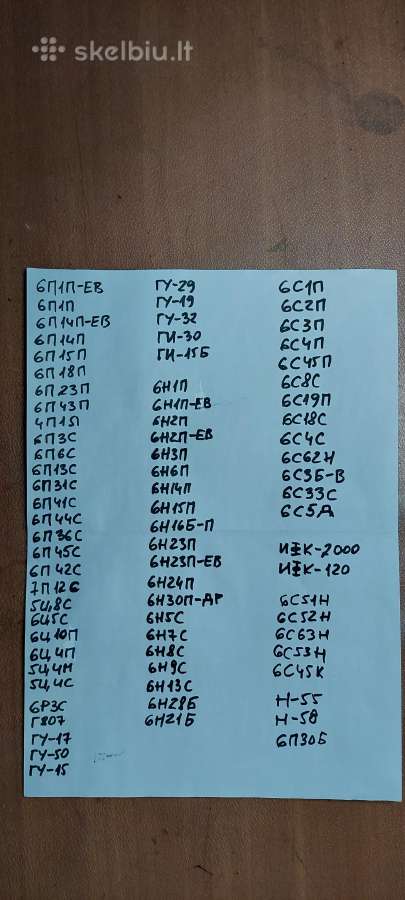 skelbiu.lt
6П1П-ЕВ
6П1П
6П14П-ЕВ
6П14П
6П15П
6П18П
6П23П
6П43П
4П1Л
6П3С
6П6С
6П13С
6П31С
6П41С
6П44С
6П36С
6П45С
6П42С
7П12С
5Ц8С
6Ц5С
6Ц10П
6Ц4П
5Ц4М
5Ц4С
6Р3С
Г807
ГУ-17
ГУ-50
ГУ-15
ГУ-29
ГУ-19
ГУ-32
ГИ-30
ГИ-15Б
6Н1П
6Н1П-ЕВ
6Н2П
6Н2П-ЕВ
6Н3П
6Н6П
6Н14П
6Н15П
6Н16Б-П
6Н23П
6Н23П-ЕВ
6Н24П
6Н30П-ДР
6Н5С
6Н7С
6Н8С
6Н9С
6Н13С
6Н28Б
6Н21Б
6С1П
6С2П
6С3П
6С4П
6С45П
6С8С
6С19П
6С18С
6С4С
6С62Н
6С3Б-В
6С33С
6С5Д
ИЖК-2000
ИЖК-120
6С51Н
6С52Н
6С63Н
6С53Н
6С45К
Н-55
Н-58
6П30Б